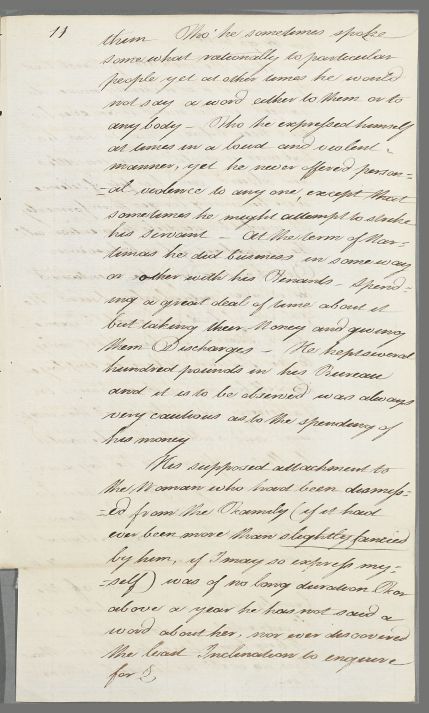 11
them Tho' he sometimes spoke
some what rationally to particular
people yet at other times he would
not say a word either to them or to
any body – Tho he expressed himself
at times in a loud and violent
manner, yet he never offered person=
=al violence to any one, except that
sometimes he might attempt to strike
his servant – At the term of Mar=
timas he did business in some way
or other with his Tenants – Spend=
ing a great deal of time about it
but taking their Money and giveing
them Discharges – He kept several
hundred pounds in his Bureau
and it is to be observed was always
very cautious as to the spending of
his money
His supposed attachment to
the Woman who had been dismiss=
=ed from the Family (if it had
ever been more than slightly fancied
by him, if I may so express my=
=self) was of no long duration For
above a year he has not said a
word about her, nor ever discovered
the least Inclination to enquire
for